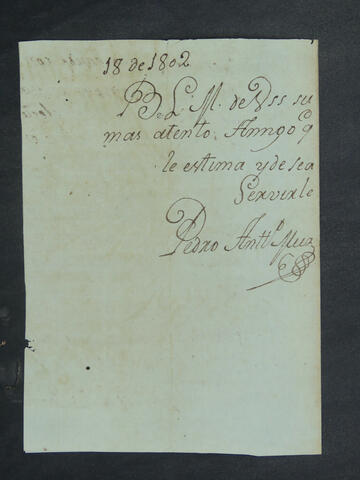 18 de 1802
B. L. M. de Vss su
mas atento Amigo q
le estima y desea
Servirle
Pedro Antto